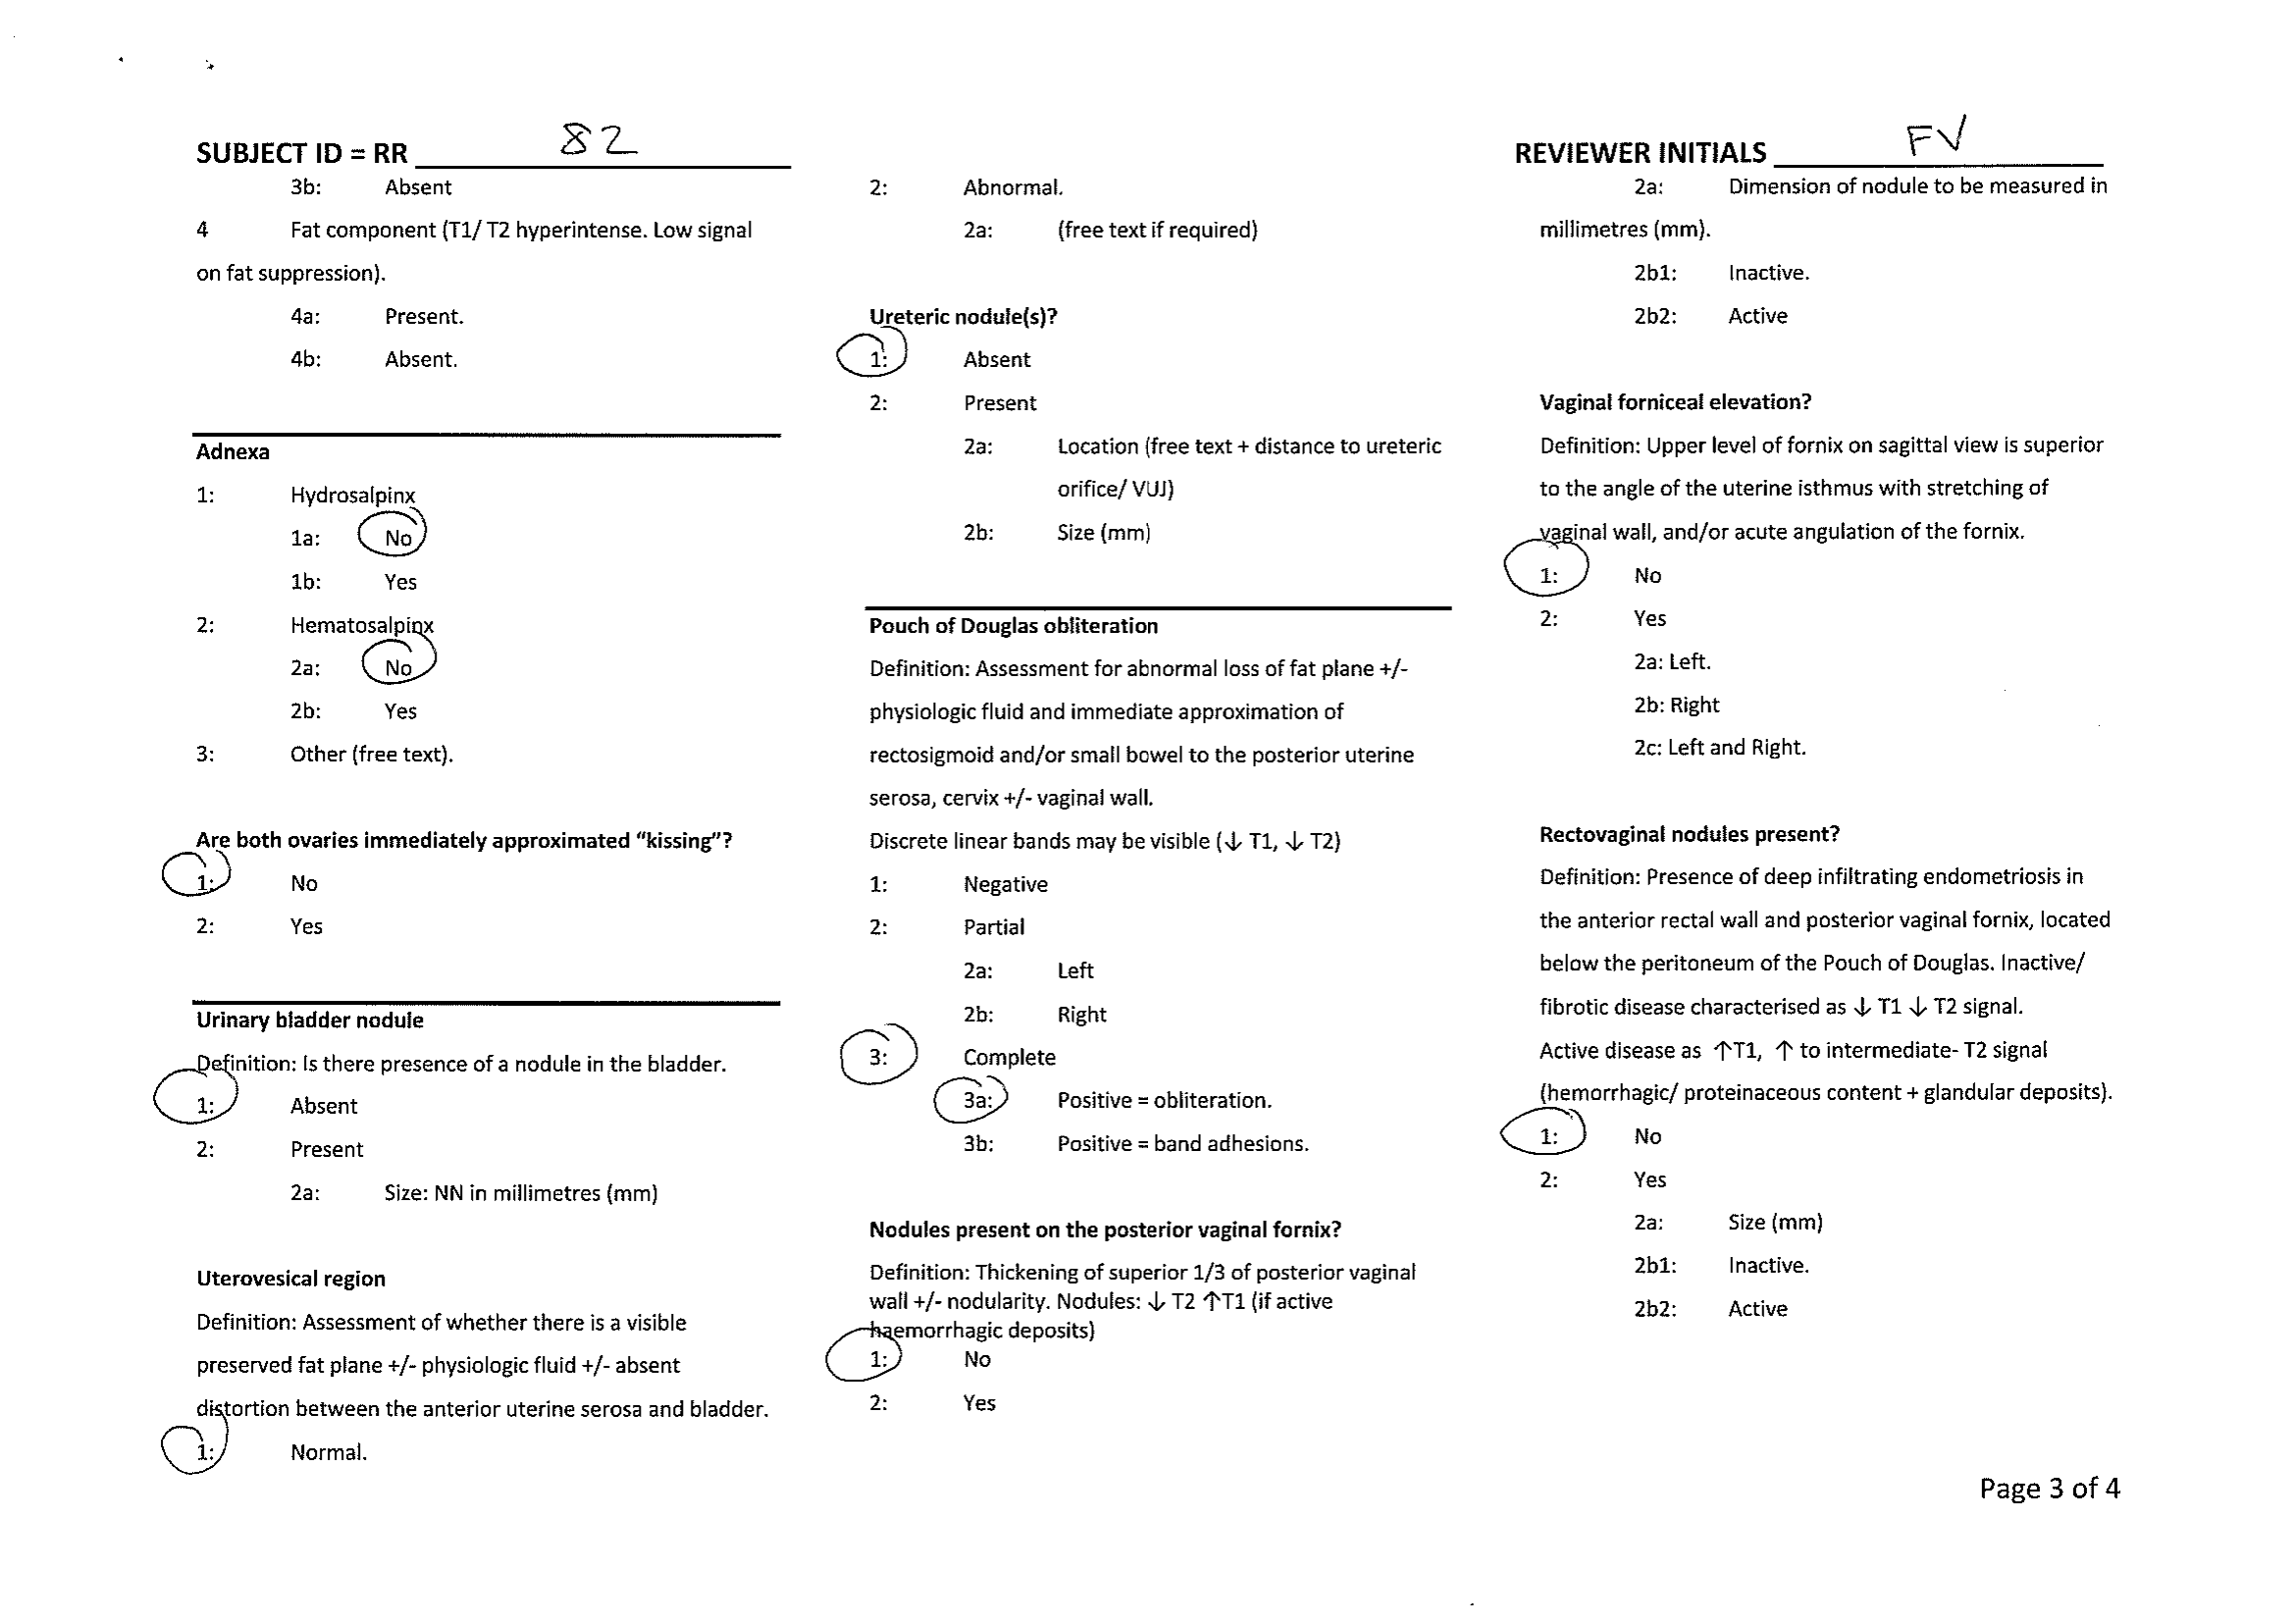 SUBJECT ID = RR 82
REVIEWER INITIALS FV
3b: Absent
4 Fat component (T1/ T2 hyperintense. Low signal
on fat suppression).
4a: Present.
4b: Absent.
Adnexa
1: Hydrosalpinx
1a: No
1b: Yes
2: Hematosalpinx
2a: No
2b: Yes
3: Other (free text).
Are both ovaries immediately approximated “kissing”?
1: No
2: Yes
Urinary bladder nodule
Definition: Is there presence of a nodule in the bladder.
1: Absent
2: Present
2a: Size: NN in millimetres (mm)
Uterovesical region
Definition: Assessment of whether there is a visible
preserved fat plane +/- physiologic fluid +/- absent
distortion between the anterior uterine serosa and bladder.
1: Normal.
2: Abnormal.
2a: (free text if required)
Ureteric nodule(s)?
1: Absent
2: Present
2a: Location (free text + distance to ureteric
orifice/ VUJ)
2b: Size (mm)
Pouch of Douglas obliteration
Definition: Assessment for abnormal loss of fat plane +/-
physiologic fluid and immediate approximation of
rectosigmoid and/or small bowel to the posterior uterine
serosa, cervix +/- vaginal wall.
Discrete linear bands may be visible (↓ T1, ↓ T2)
1: Negative
2: Partial
2a: Left
2b: Right
3: Complete
3a: Positive = obliteration.
3b: Positive = band adhesions.
Nodules present on the posterior vaginal fornix?
Definition: Thickening of superior 1/3 of posterior vaginal
wall +/- nodularity. Nodules: ↓ T2 ↑T1 (if active
haemorrhagic deposits)
1: No
2: Yes
2a: Dimension of nodule to be measured in
millimetres (mm).
2b1: Inactive.
2b2: Active
Vaginal forniceal elevation?
Definition: Upper level of fornix on sagittal view is superior
to the angle of the uterine isthmus with stretching of
vaginal wall, and/or acute angulation of the fornix.
1: No
2: Yes
2a: Left.
2b: Right
2c: Left and Right.
Rectovaginal nodules present?
Definition: Presence of deep infiltrating endometriosis in
the anterior rectal wall and posterior vaginal fornix, located
below the peritoneum of the Pouch of Douglas. Inactive/
fibrotic disease characterised as ↓ T1 ↓ T2 signal.
Active disease as ↑T1, ↑ to intermediate- T2 signal
(hemorrhagic/ proteinaceous content + glandular deposits).
1: No
2: Yes
2a: Size (mm)
2b1: Inactive.
2b2: Active
Page 3 of 4